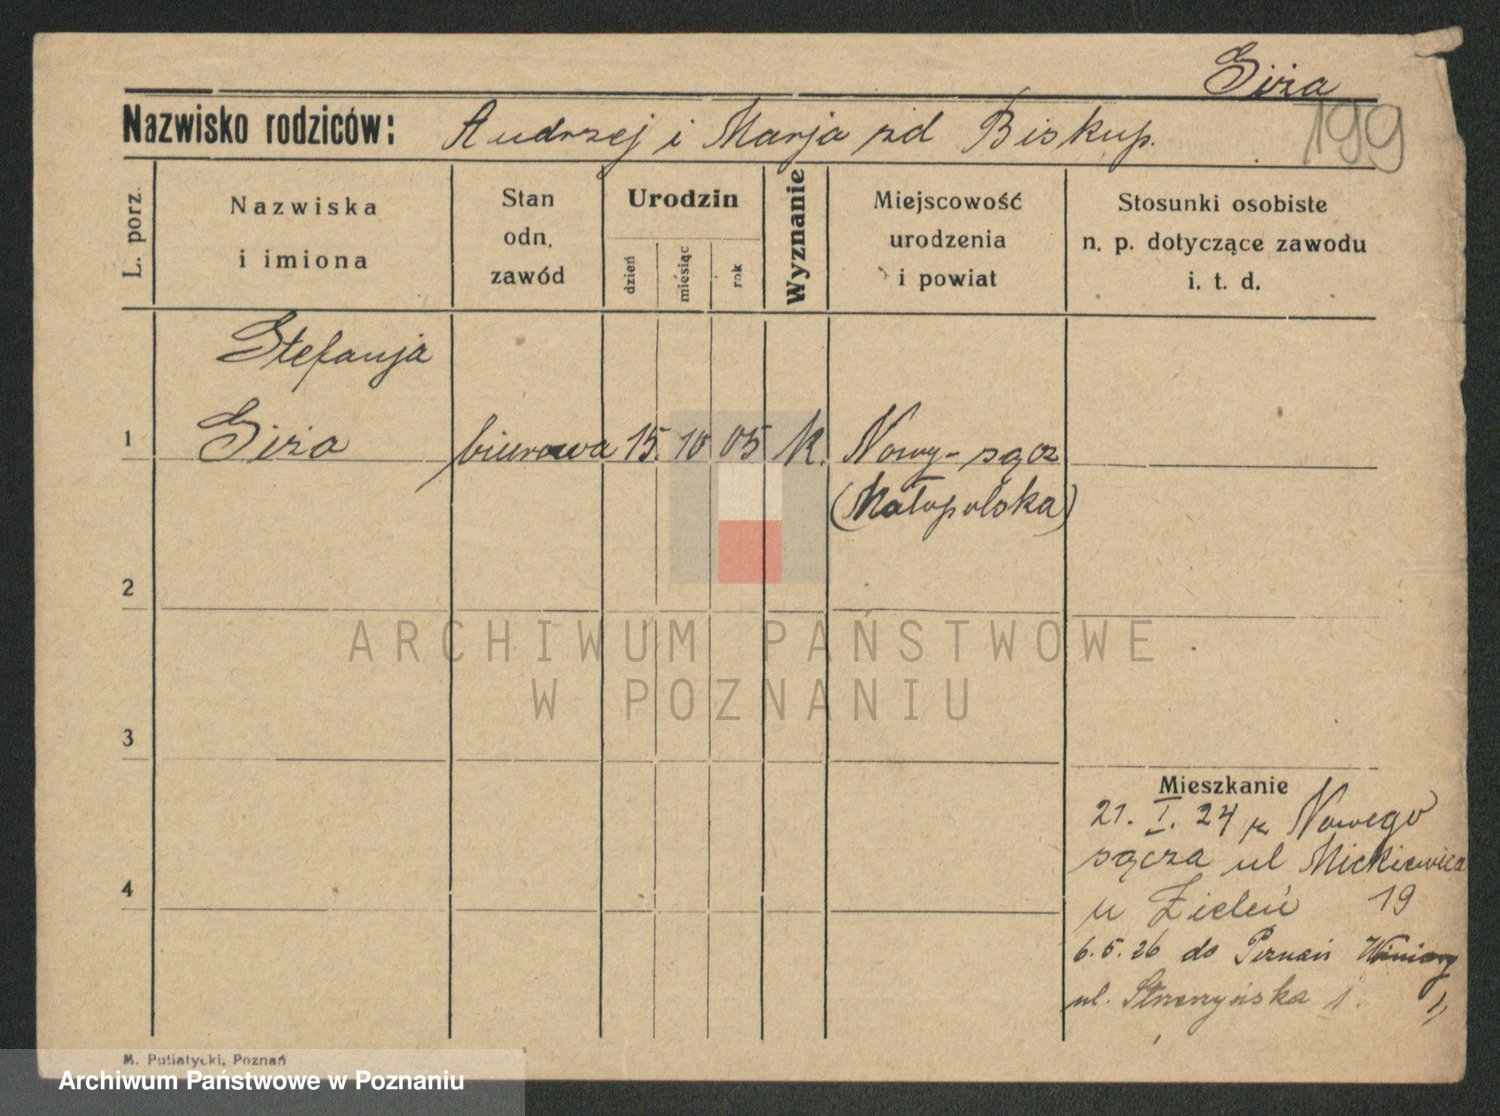 Giża
199
Nazwisko rodziców: Andrzej i Marja zd Biskup.
L. porz.
Nazwiska
i imiona
Stan
odn.
zawód
Urodzin
dzień
miesiąc
rok
Wyznanie
Miejscowość
urodzenia
i powiat
Stosunki osobiste
n. p. dotyczące zawodu
i. t. d.
Stefanja
1 Giża biurowa 15. 10 05 k. Nowy-sącz
(Małopolska)
2
3
4
Mieszkanie
21. I. 24 z Nowego
sącza ul Mickiewicza
u Zieleń 19
6.5.26 do Poznań Winiary
ul. Strzeszyńska 1.
ARCHIWUM PAŃSTWOWE
W POZNANIU
M. Putiatycki, Poznań
Archiwum Państwowe w Poznaniu